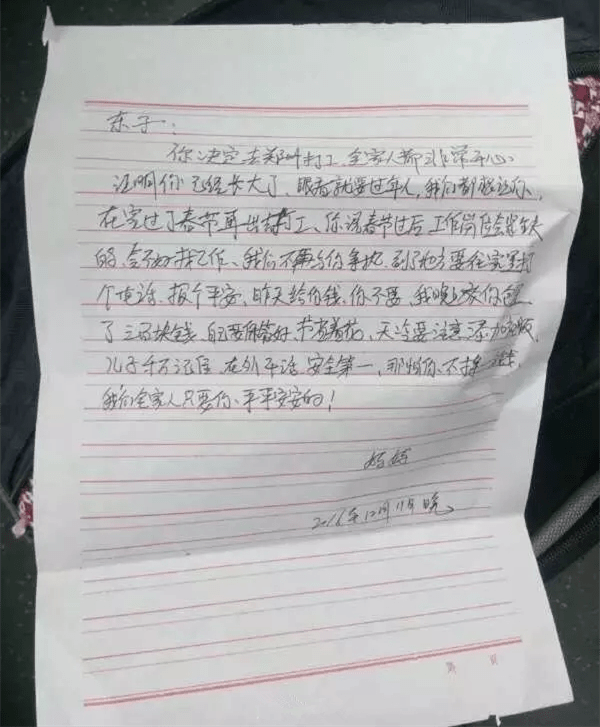 东子:
你决定去郑州打工、全家人都非常开心
证明你已经长大了、眼看就要过年人,我们都想让你、
在家过了春节再出去打工、你说春节过后工作岗位会缺
的、会不好找工作、我们不再与你争执、到了地方要往家里打
个电话、报个平安,昨天给你钱、你不要、我晚上给你包
了三百块钱、自己要保管好、节省着花、天冷要注意添加衣服、
儿子千万记住、在外干活安全第一,那怕你不挣一分钱,
我们全家人只要你、平平安安的!
妈妈
2016年12月11日晚
第 页